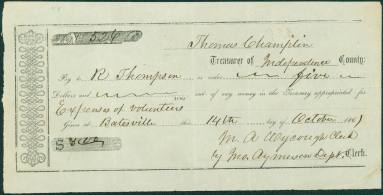 No 526
Thomas Champlin
Treasurer of Independence County:
Pay to R Thompson or order five
Dollars and out of any money in the Treasury appropriated for
Expenses of volunteers
Given at Batesville this 14th day of October 1861
M. A. Wycough Clerk
$ 5.00 by Dept. Clerk.